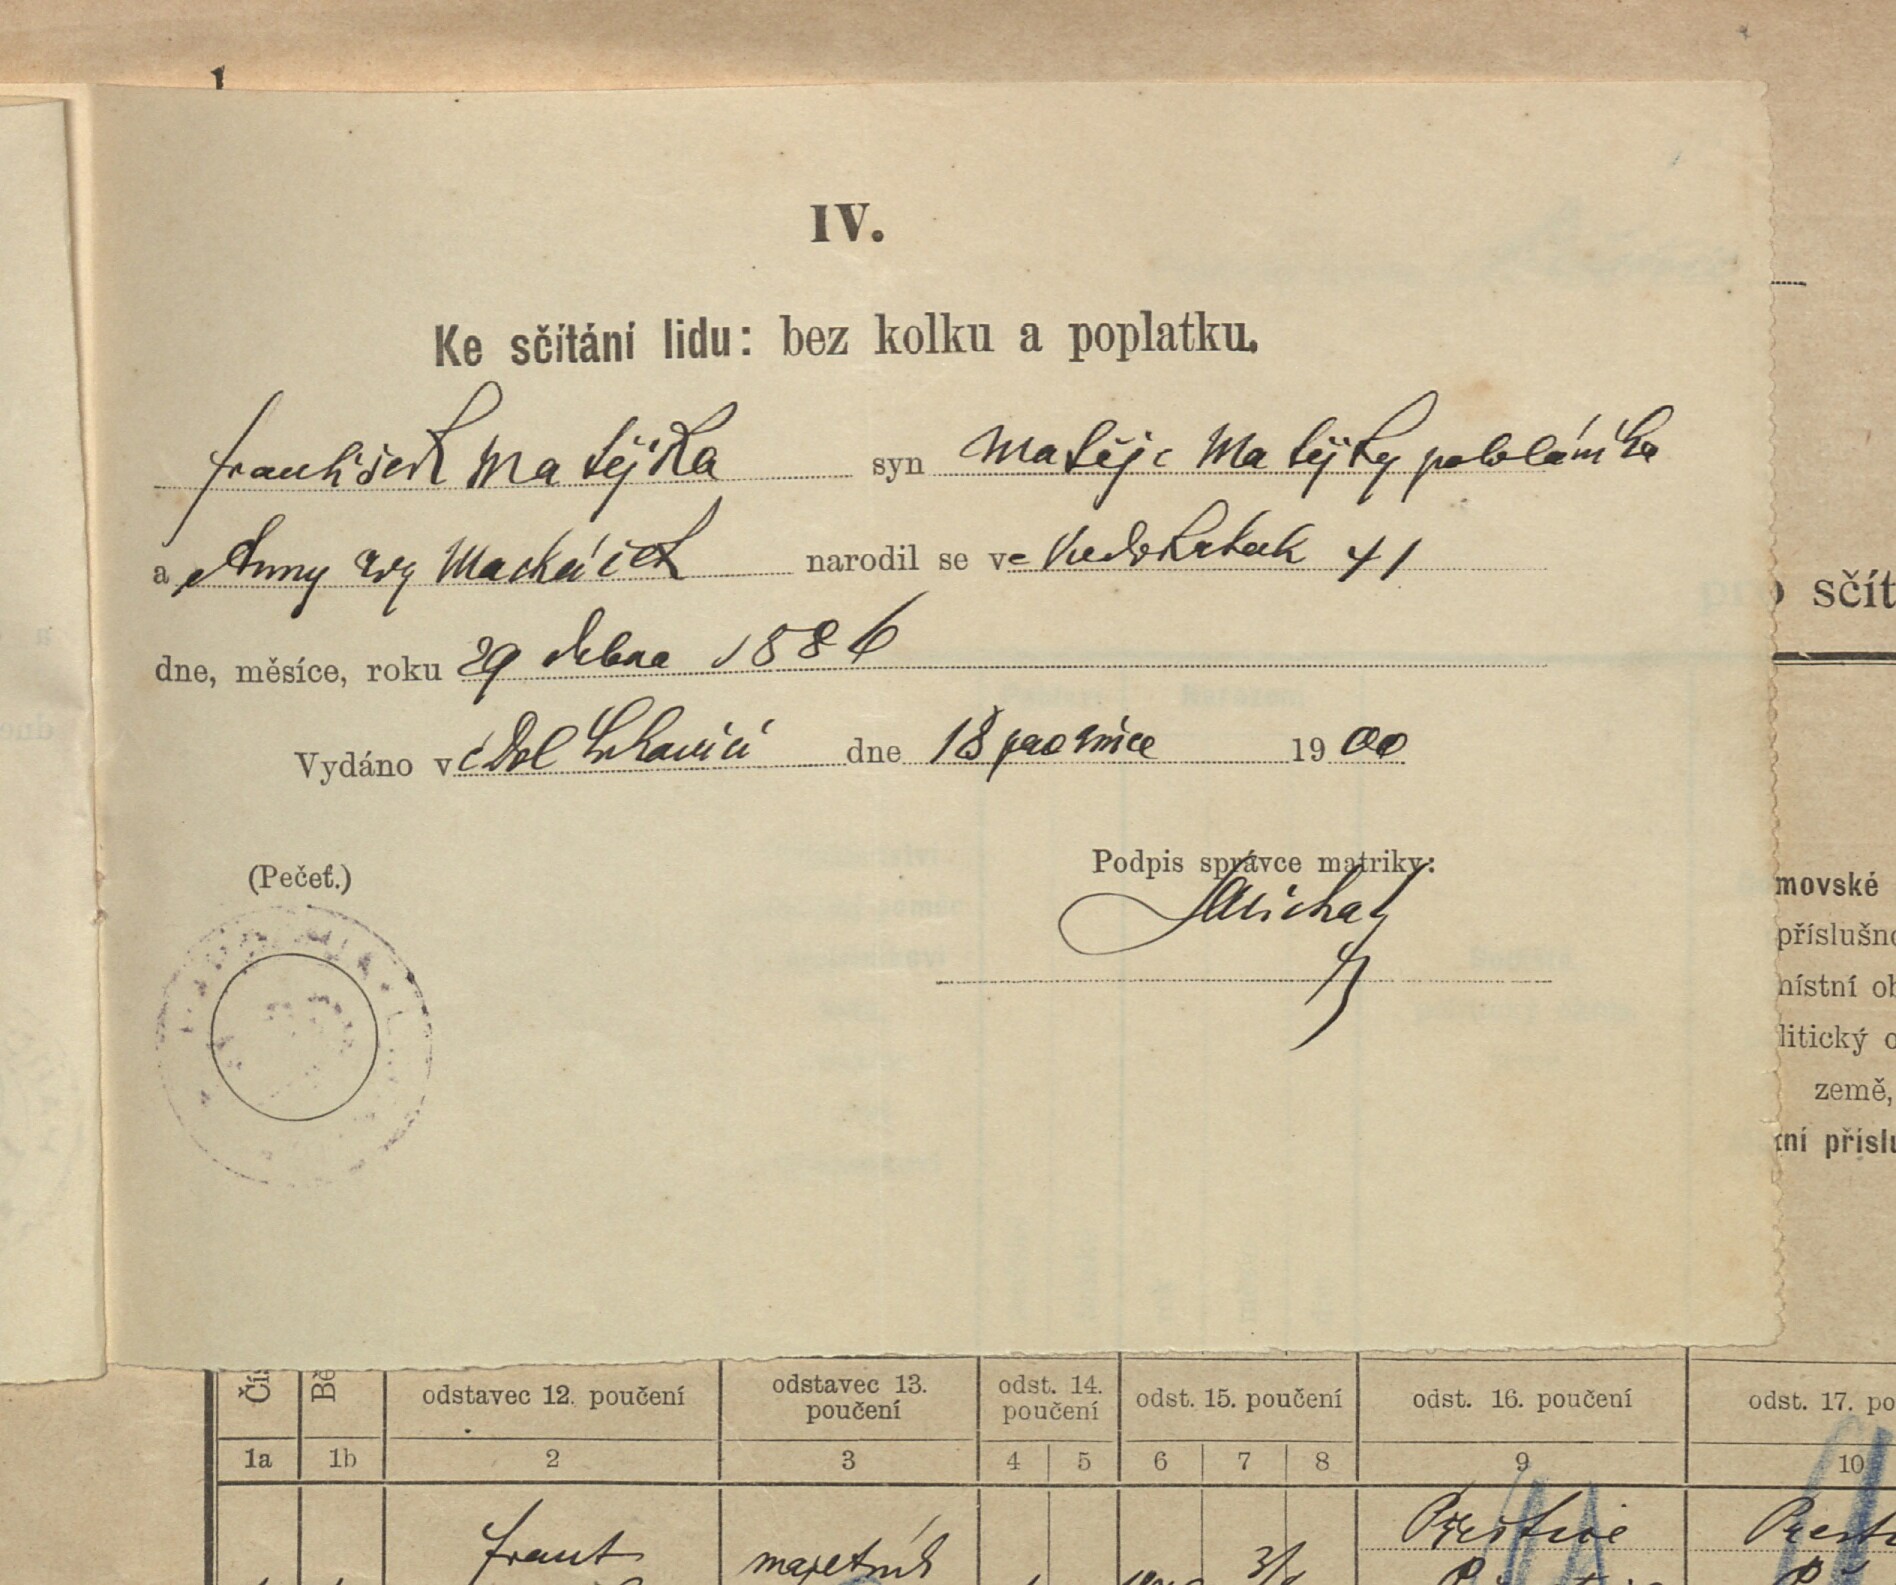 IV.
Ke sčítání lidu: bez kolku a poplatku.
František Matějka syn Matěje Matějky pololáníka
a Anny roz Mackáček narodil se ve 41
dne, měsíce, roku 29 dubna 1886
Vydáno v Dol Lukavici dne 18 prosince 1900
(Pečeť.)
Podpis správce matriky:
sčít
movské
příslušno
místní ob
litický o
země,
tní příslu
odstavec 12. poučení
odstavec 13. poučení
odst. 14. poučení
odst. 15. poučení
odst. 16. poučení
odst. 17. po
1a 1b 2 3 4 5 6 7 8 9 10
Frant
Přeštice